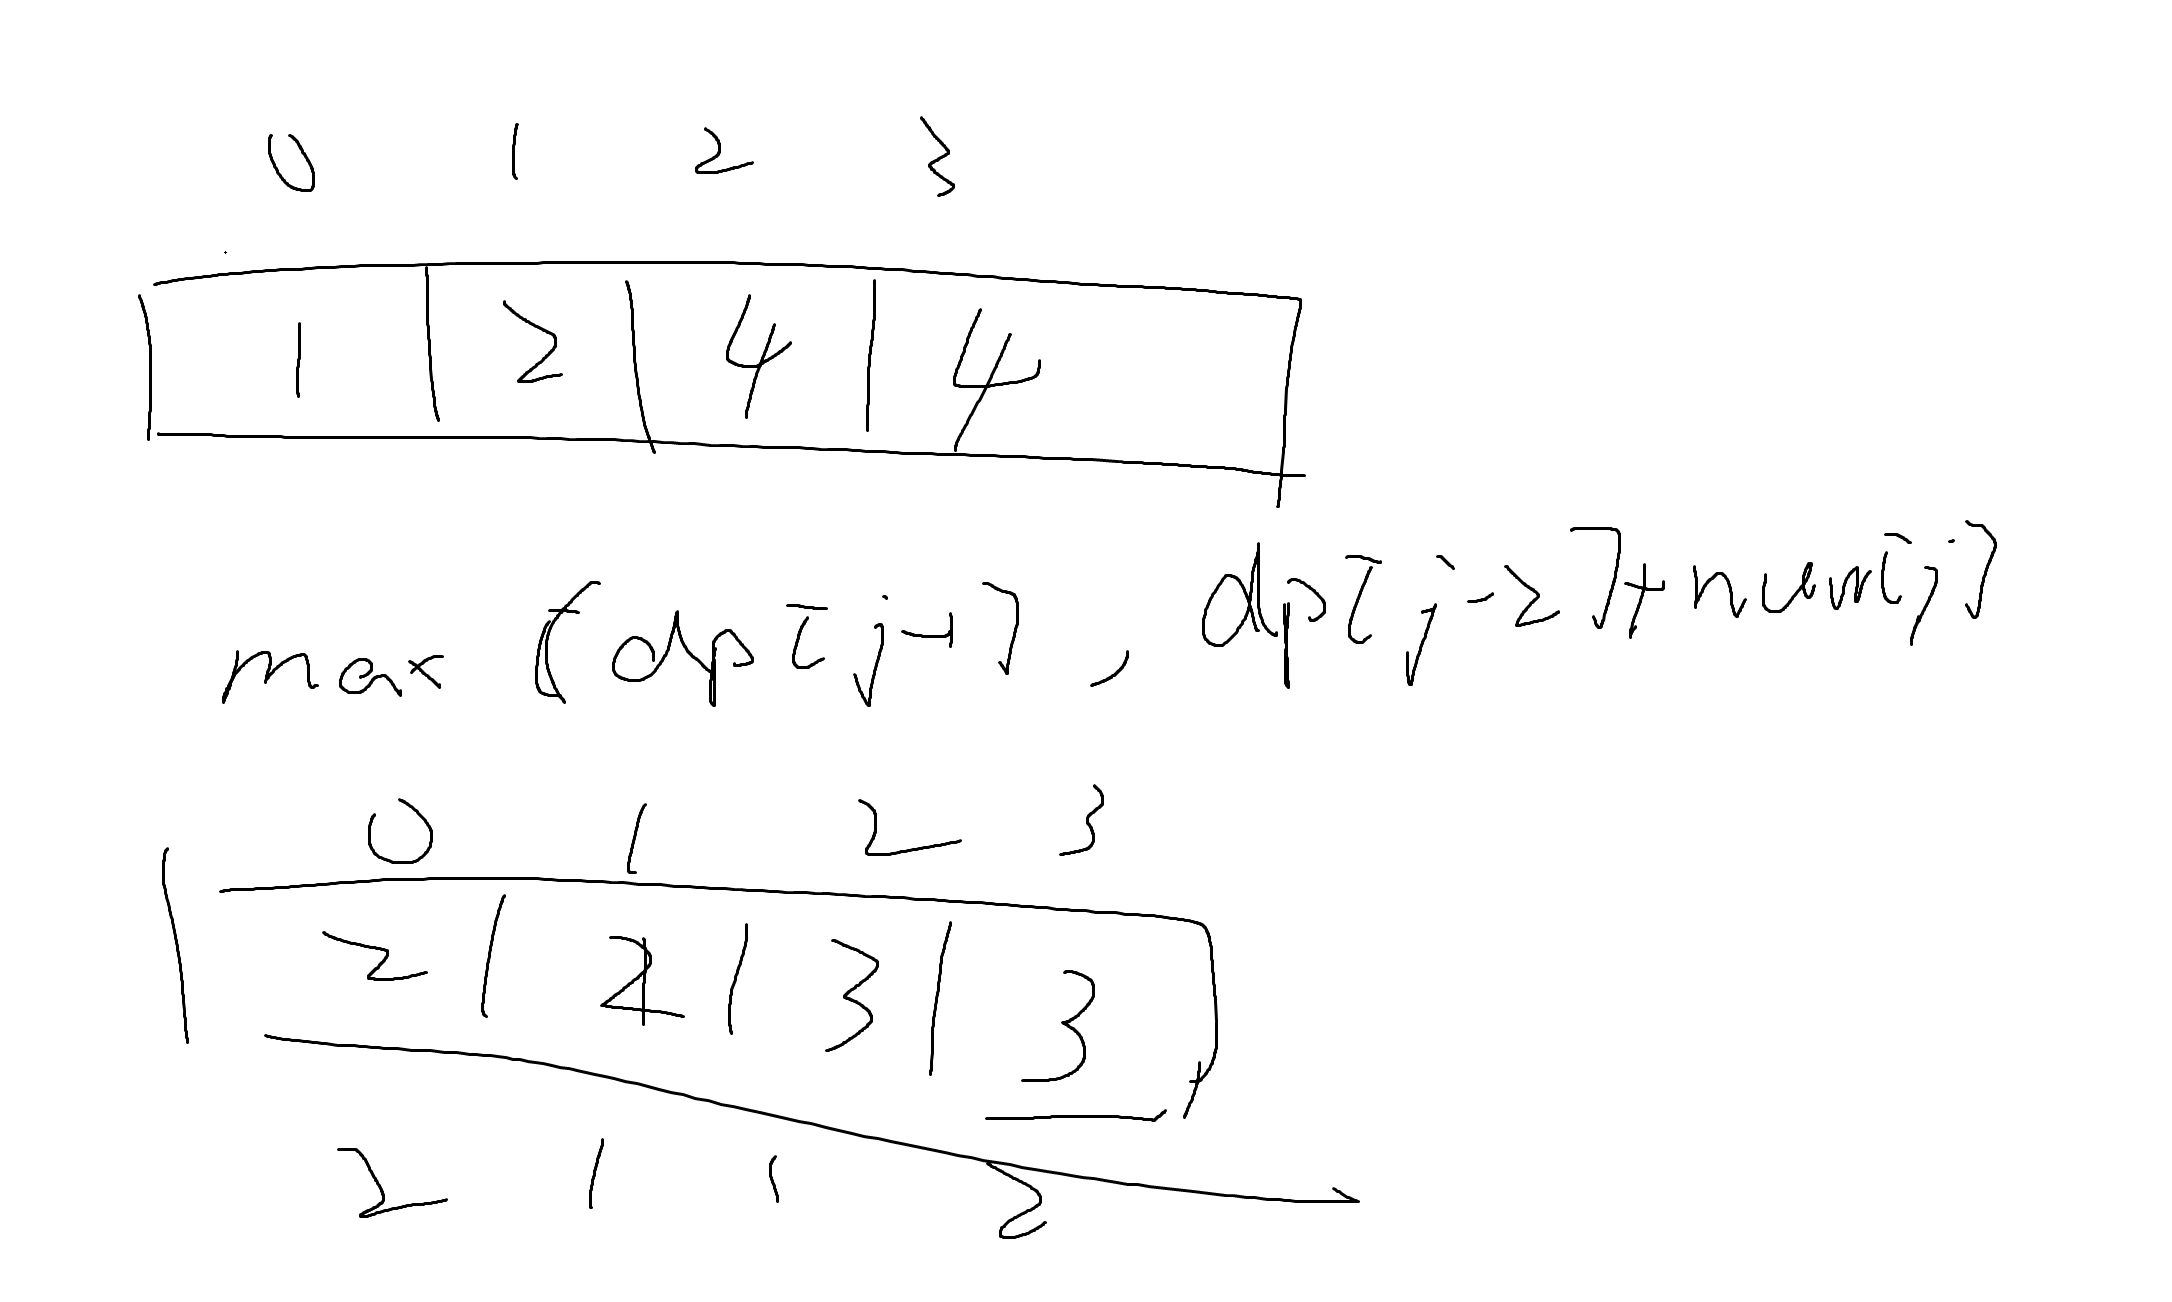 0 1 2 3
1 2 4 4
max (dp[j-1], dp[j-2]+num[j]
0 1 2 3
2 2 3 3
2 1 1 2